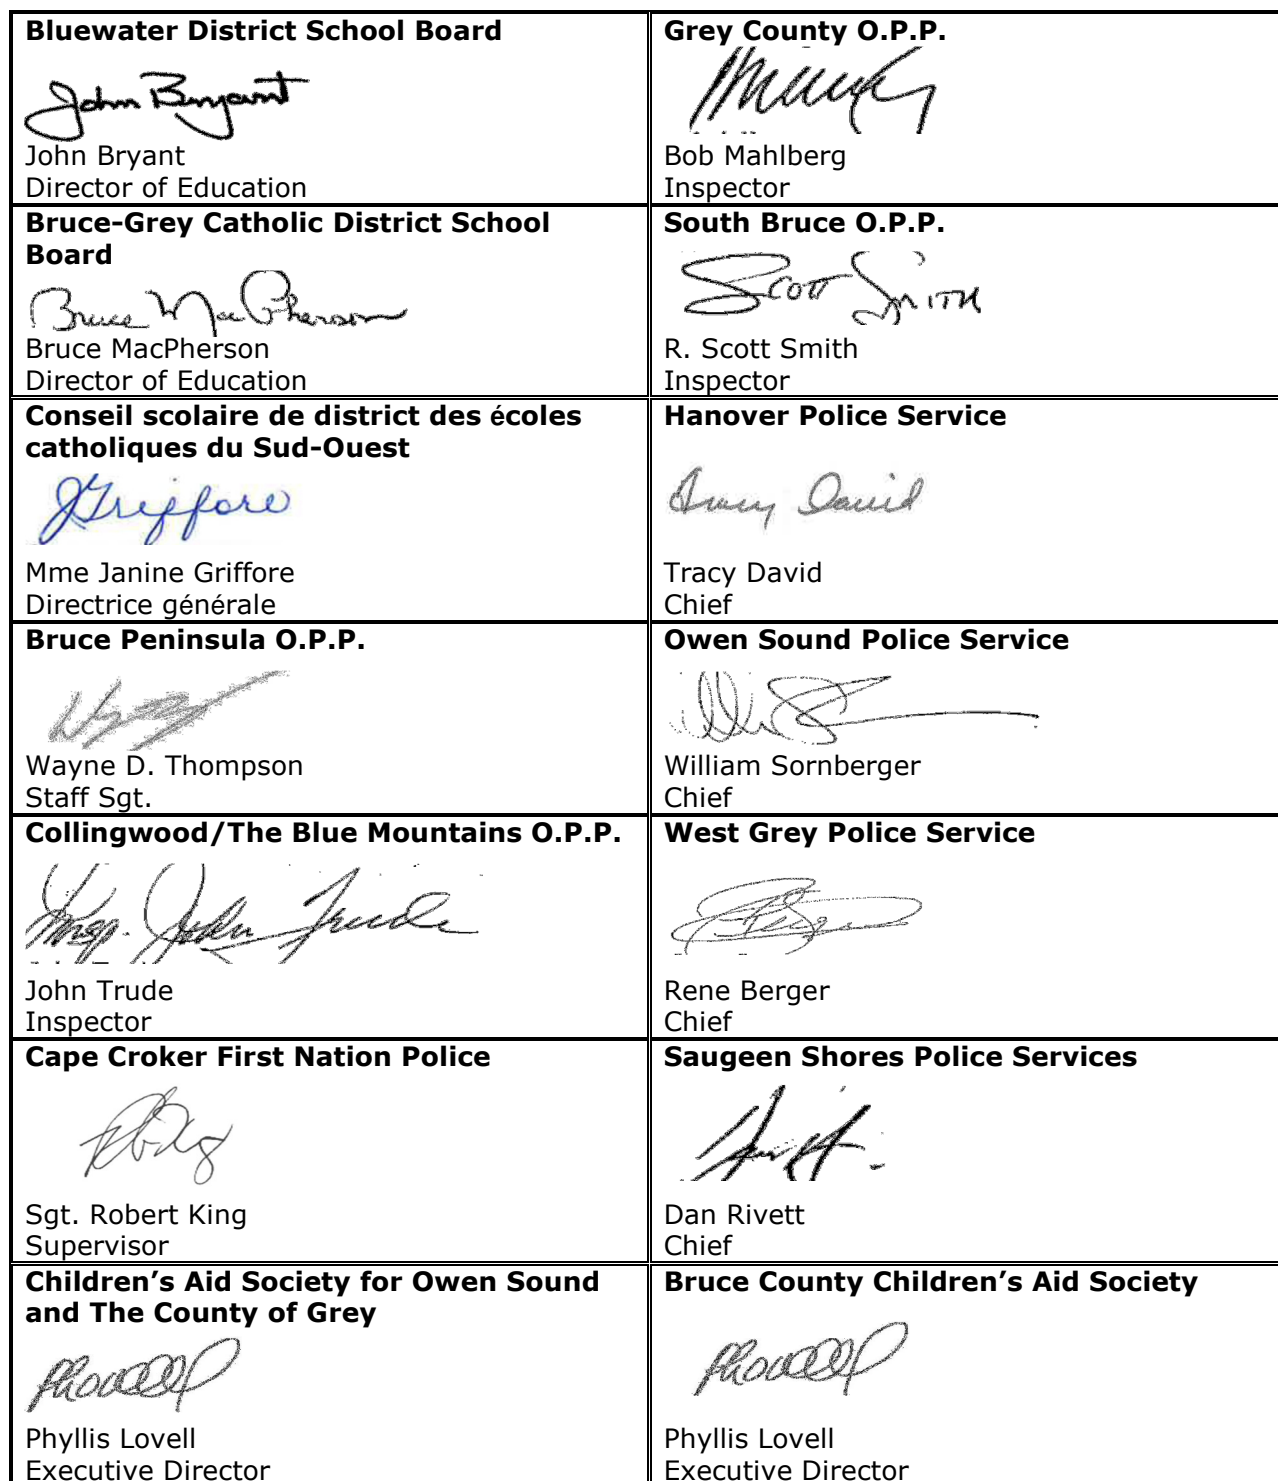 Bluewater District School Board
John Bryant
John Bryant
Director of Education
Grey County O.P.P.
Bob Mahlberg
Inspector
Bruce-Grey Catholic District School
Board
Bruce MacPherson
Bruce MacPherson
Director of Education
South Bruce O.P.P.
Scott Smith
R. Scott Smith
Inspector
Conseil scolaire de district des écoles
catholiques du Sud-Ouest
JGriffore
Mme Janine Griffore
Directrice générale
Hanover Police Service
Tracy David
Tracy David
Chief
Bruce Peninsula O.P.P.
Wayne D. Thompson
Staff Sgt.
Owen Sound Police Service
William Sornberger
Chief
Collingwood/The Blue Mountains O.P.P.
Insp. John Trude
John Trude
Inspector
West Grey Police Service
Rene Berger
Chief
Cape Croker First Nation Police
Sgt. Robert King
Supervisor
Saugeen Shores Police Services
Dan Rivett
Chief
Children’s Aid Society for Owen Sound
and The County of Grey
PLovell
Phyllis Lovell
Executive Director
Bruce County Children’s Aid Society
PLovell
Phyllis Lovell
Executive Director